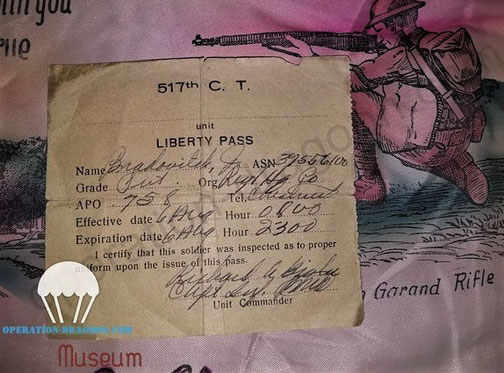 th you
rue
517th C. T.
unit
LIBERTY PASS
Name ASN 39556100
Grade Pvt Org Reg Hq Co
APO 758 Tel.
Effective date 6 Aug Hour 0800
Expiration date 6 Aug Hour 2300
I certify that this soldier was inspected as to proper
uniform upon the issue of this pass.
Unit Commander
Garand Rifle
OPERATION-DRAGOON.COM
Museum